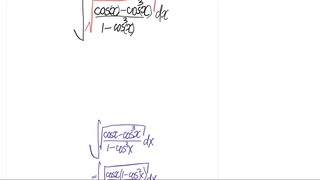 ∫√((cos(x)-cos³(x))/(1-cos³(x))) dx
∫√((cosx-cos³x)/(1-cos³x)) dx
=∫√(cosx(1-cos²x)) dx